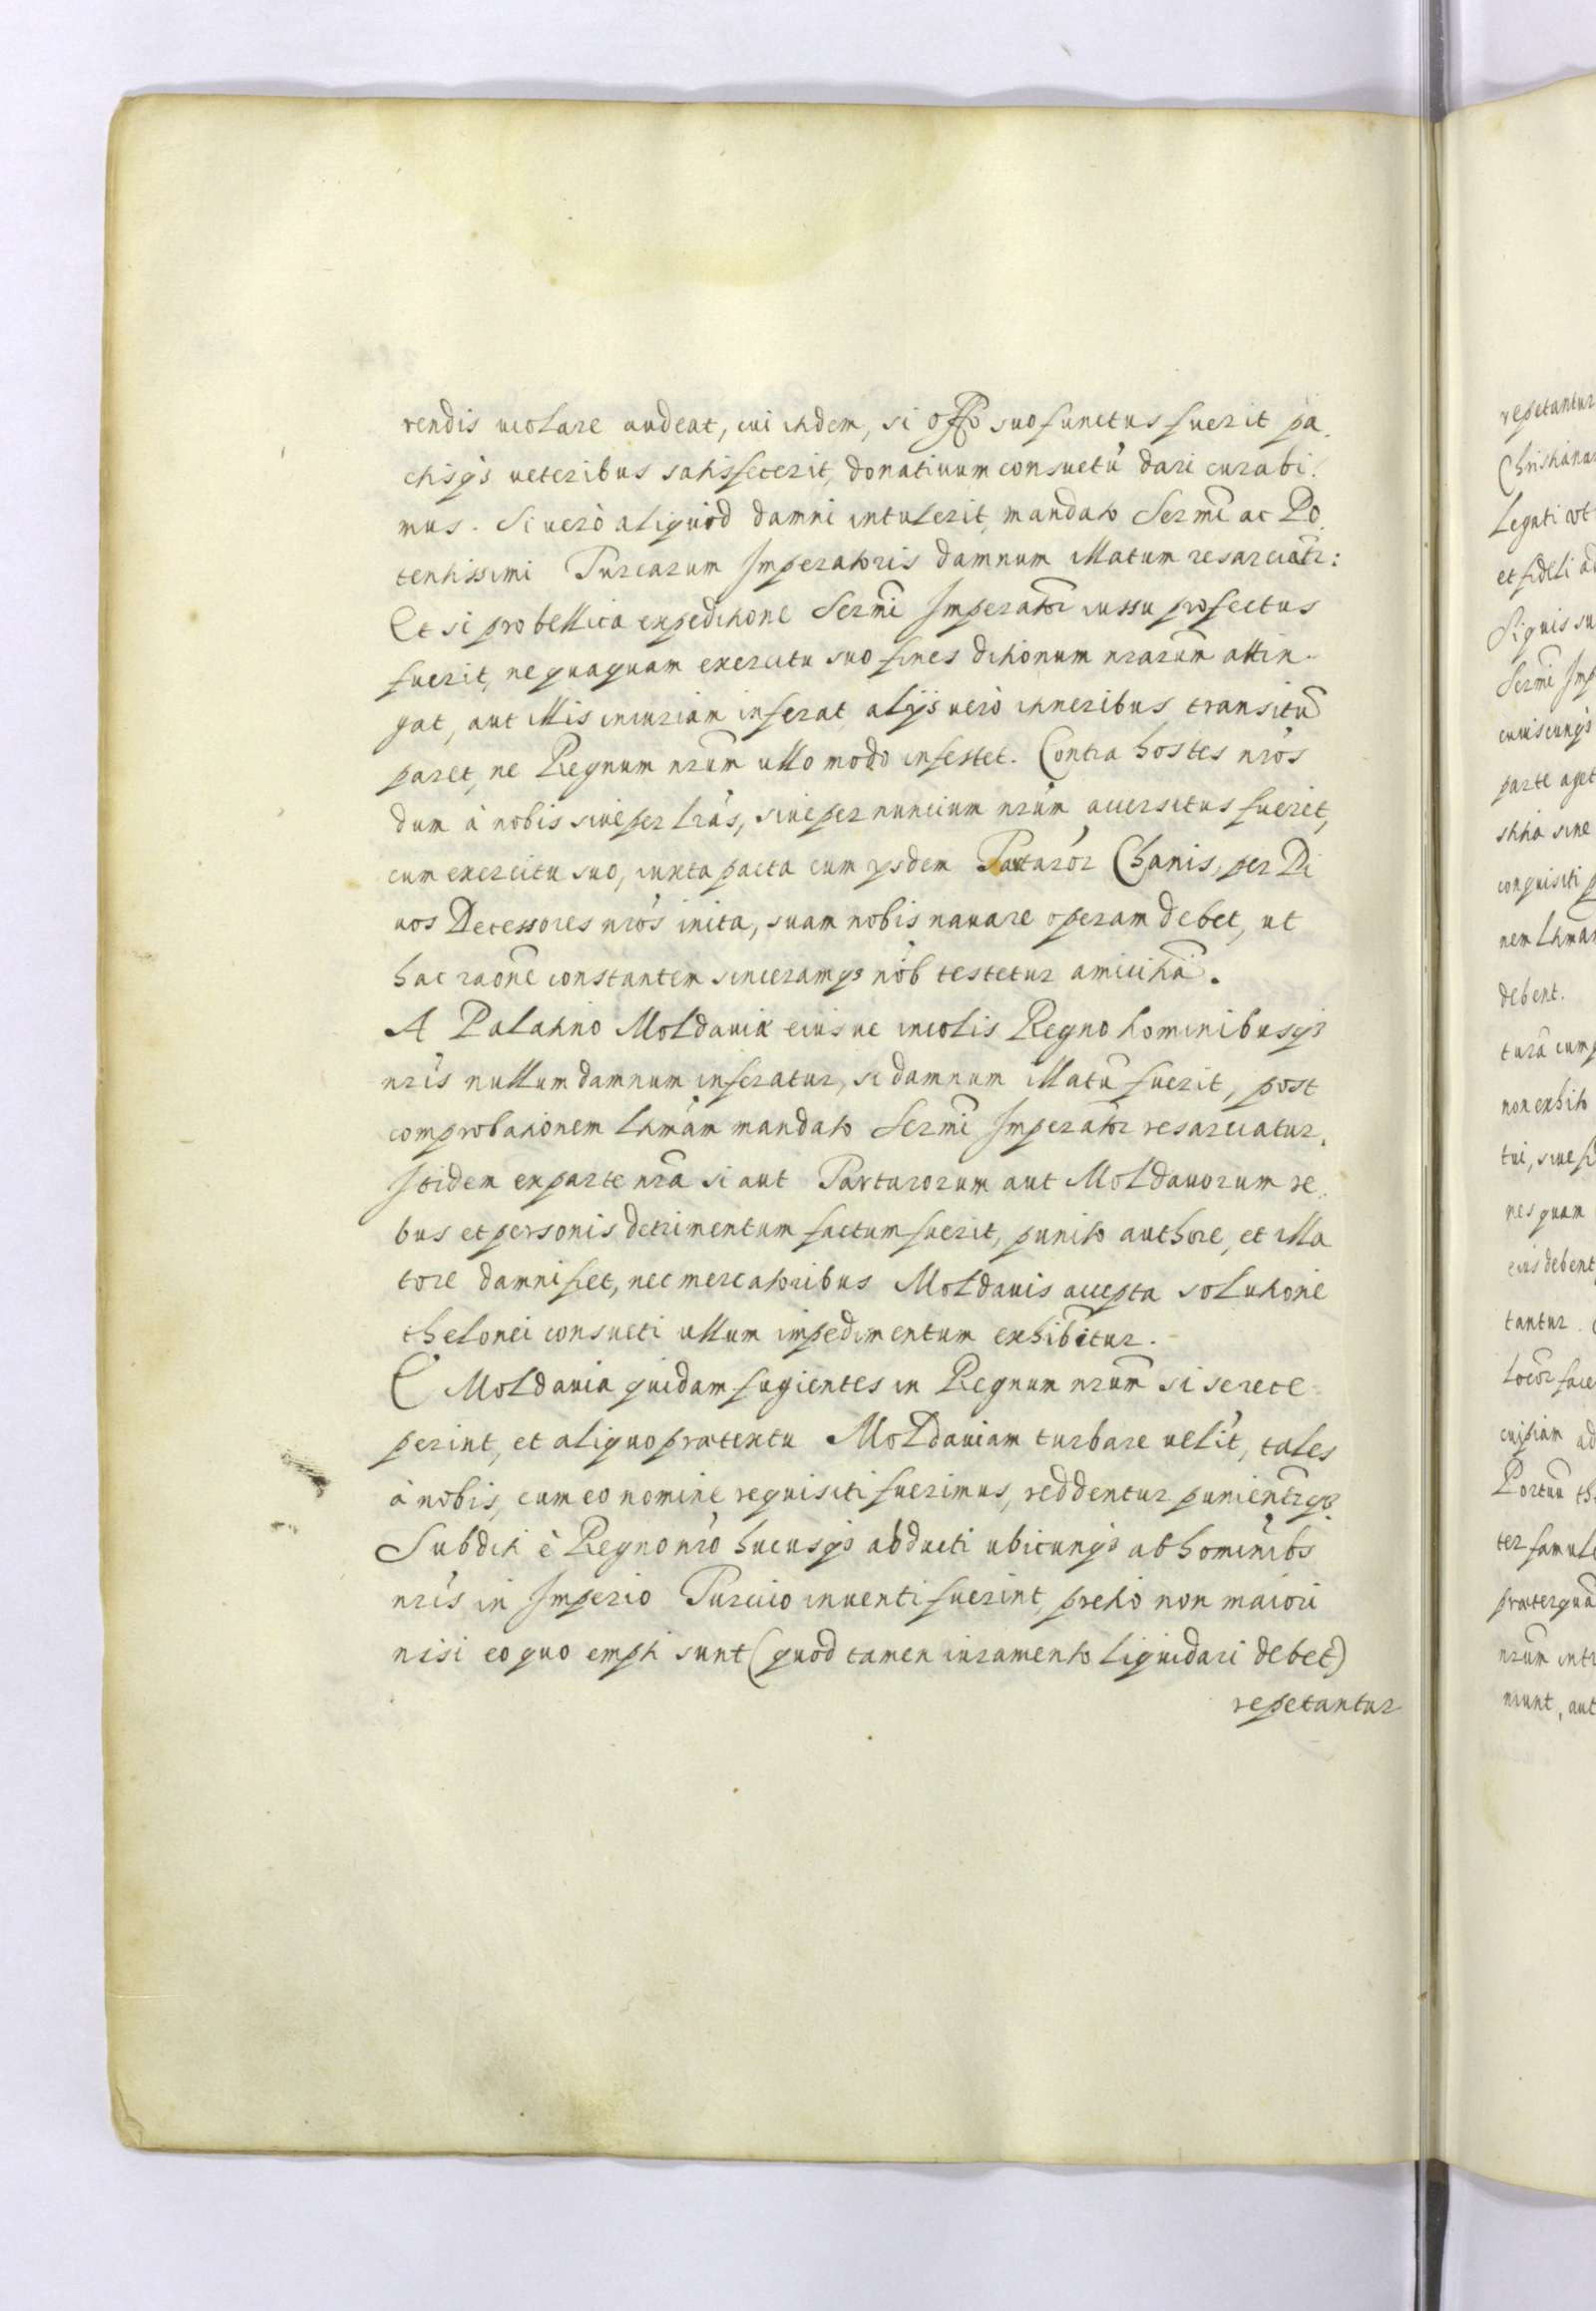 rendis uiolare audeat, cui itidem, si offo suo functus fuerit pa
ctisqȝ ueteribus satisfecerit, donatiuum consuetũ dari curabi
mus. Si uerò aliquid damni intulerit, mandato Sermi ac Po
tentissimi Turcarum Imperatoris damnum illatum resarciatr:
Et si pro bellica expeditione Sermi Imperator iussu profectus
fuerit, nequaquam exercitu suo fines ditionum nrarum attin-
gat, aut illis iniuriam inferat, alijs uerò itineribus transitũ
paret, ne Regnum nrum ullo modo infestet. Contra hostes nros
dum à nobis siue per lras, siue per nuncium nrum accersitus fuerit,
cum exercitu suo, iuxta pacta cum ysdem Tartaror Chanis, per Di
uos Decessores nros inita, suam nobis nauare operam debet, ut
hac raone constantem sinceramqȝ nob testetur amicitiã.
A Palatino Moldauiæ eiusue incolis Regno hominibusqȝ
nris nullum damnum inferatur, si damnum illatũ fuerit, post
comprobationem ltimam mandato Sermi Imperator resarciatur.
Itidem ex parte nra si aut Tartarorum aut Moldauorum re
bus et personis detrimentum factum fuerit, punito authore, et illa
tore damni fiet, nec mercatoribus Moldauis accepta solutione
thelonei consueti ullum impedimentum exhibitur.
E Moldauia quidam fugientes in Regnum nrum si se rece
perint, et aliquo prætextu Moldauiam turbare uelit, tales
à nobis, cum eo nomine requisiti fuerimus, reddentur punientrqȝ
Subditi è Regno nro hucusqȝ abducti ubicunqȝ ab hominibs
nris in Imperio Turcico inuenti fuerint, pretio non maiori
nisi eo quo empti sunt (quod tamen iuramento liquidari debet)
repetantur
repetantur
Christiana
Legati ut
et fideli ad
Siquis su
Sermi Imp
cuiuscunqȝ
parte aget
stitia sine
conquisiti p
nem ltimam
debent.
tura cum p
non exhito
tui, siue si
nes quam
eius debent
tantur.
locor face
cuipiam ad
Portuu th
ter famule
præterquã
nrum intr
niunt, aut